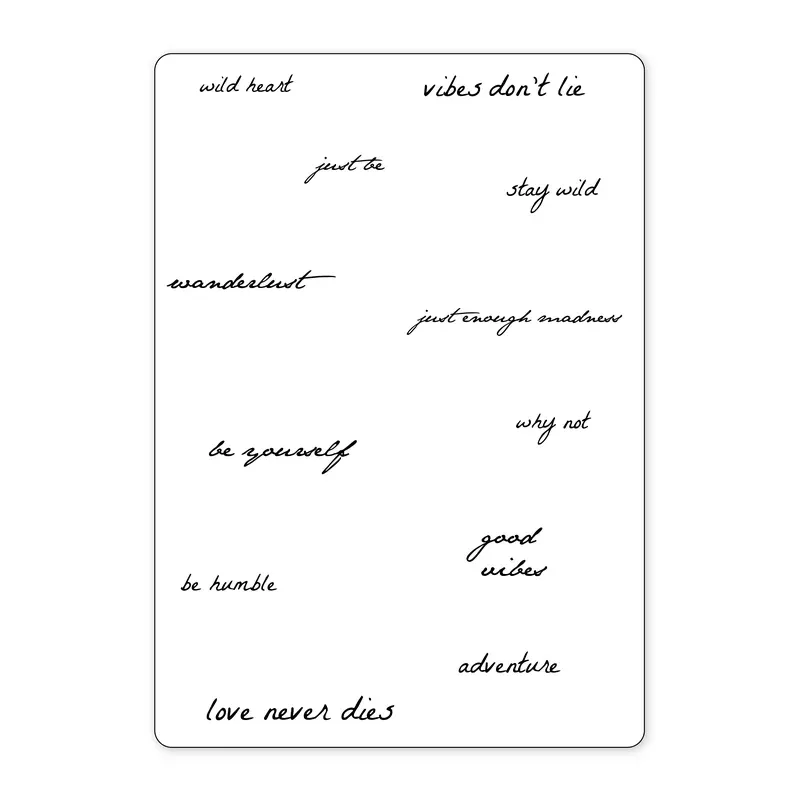 wild heart
vibes don't lie
just be
stay wild
wanderlust
just enough madness
why not
be yourself
good
vibes
be humble
adventure
love never dies